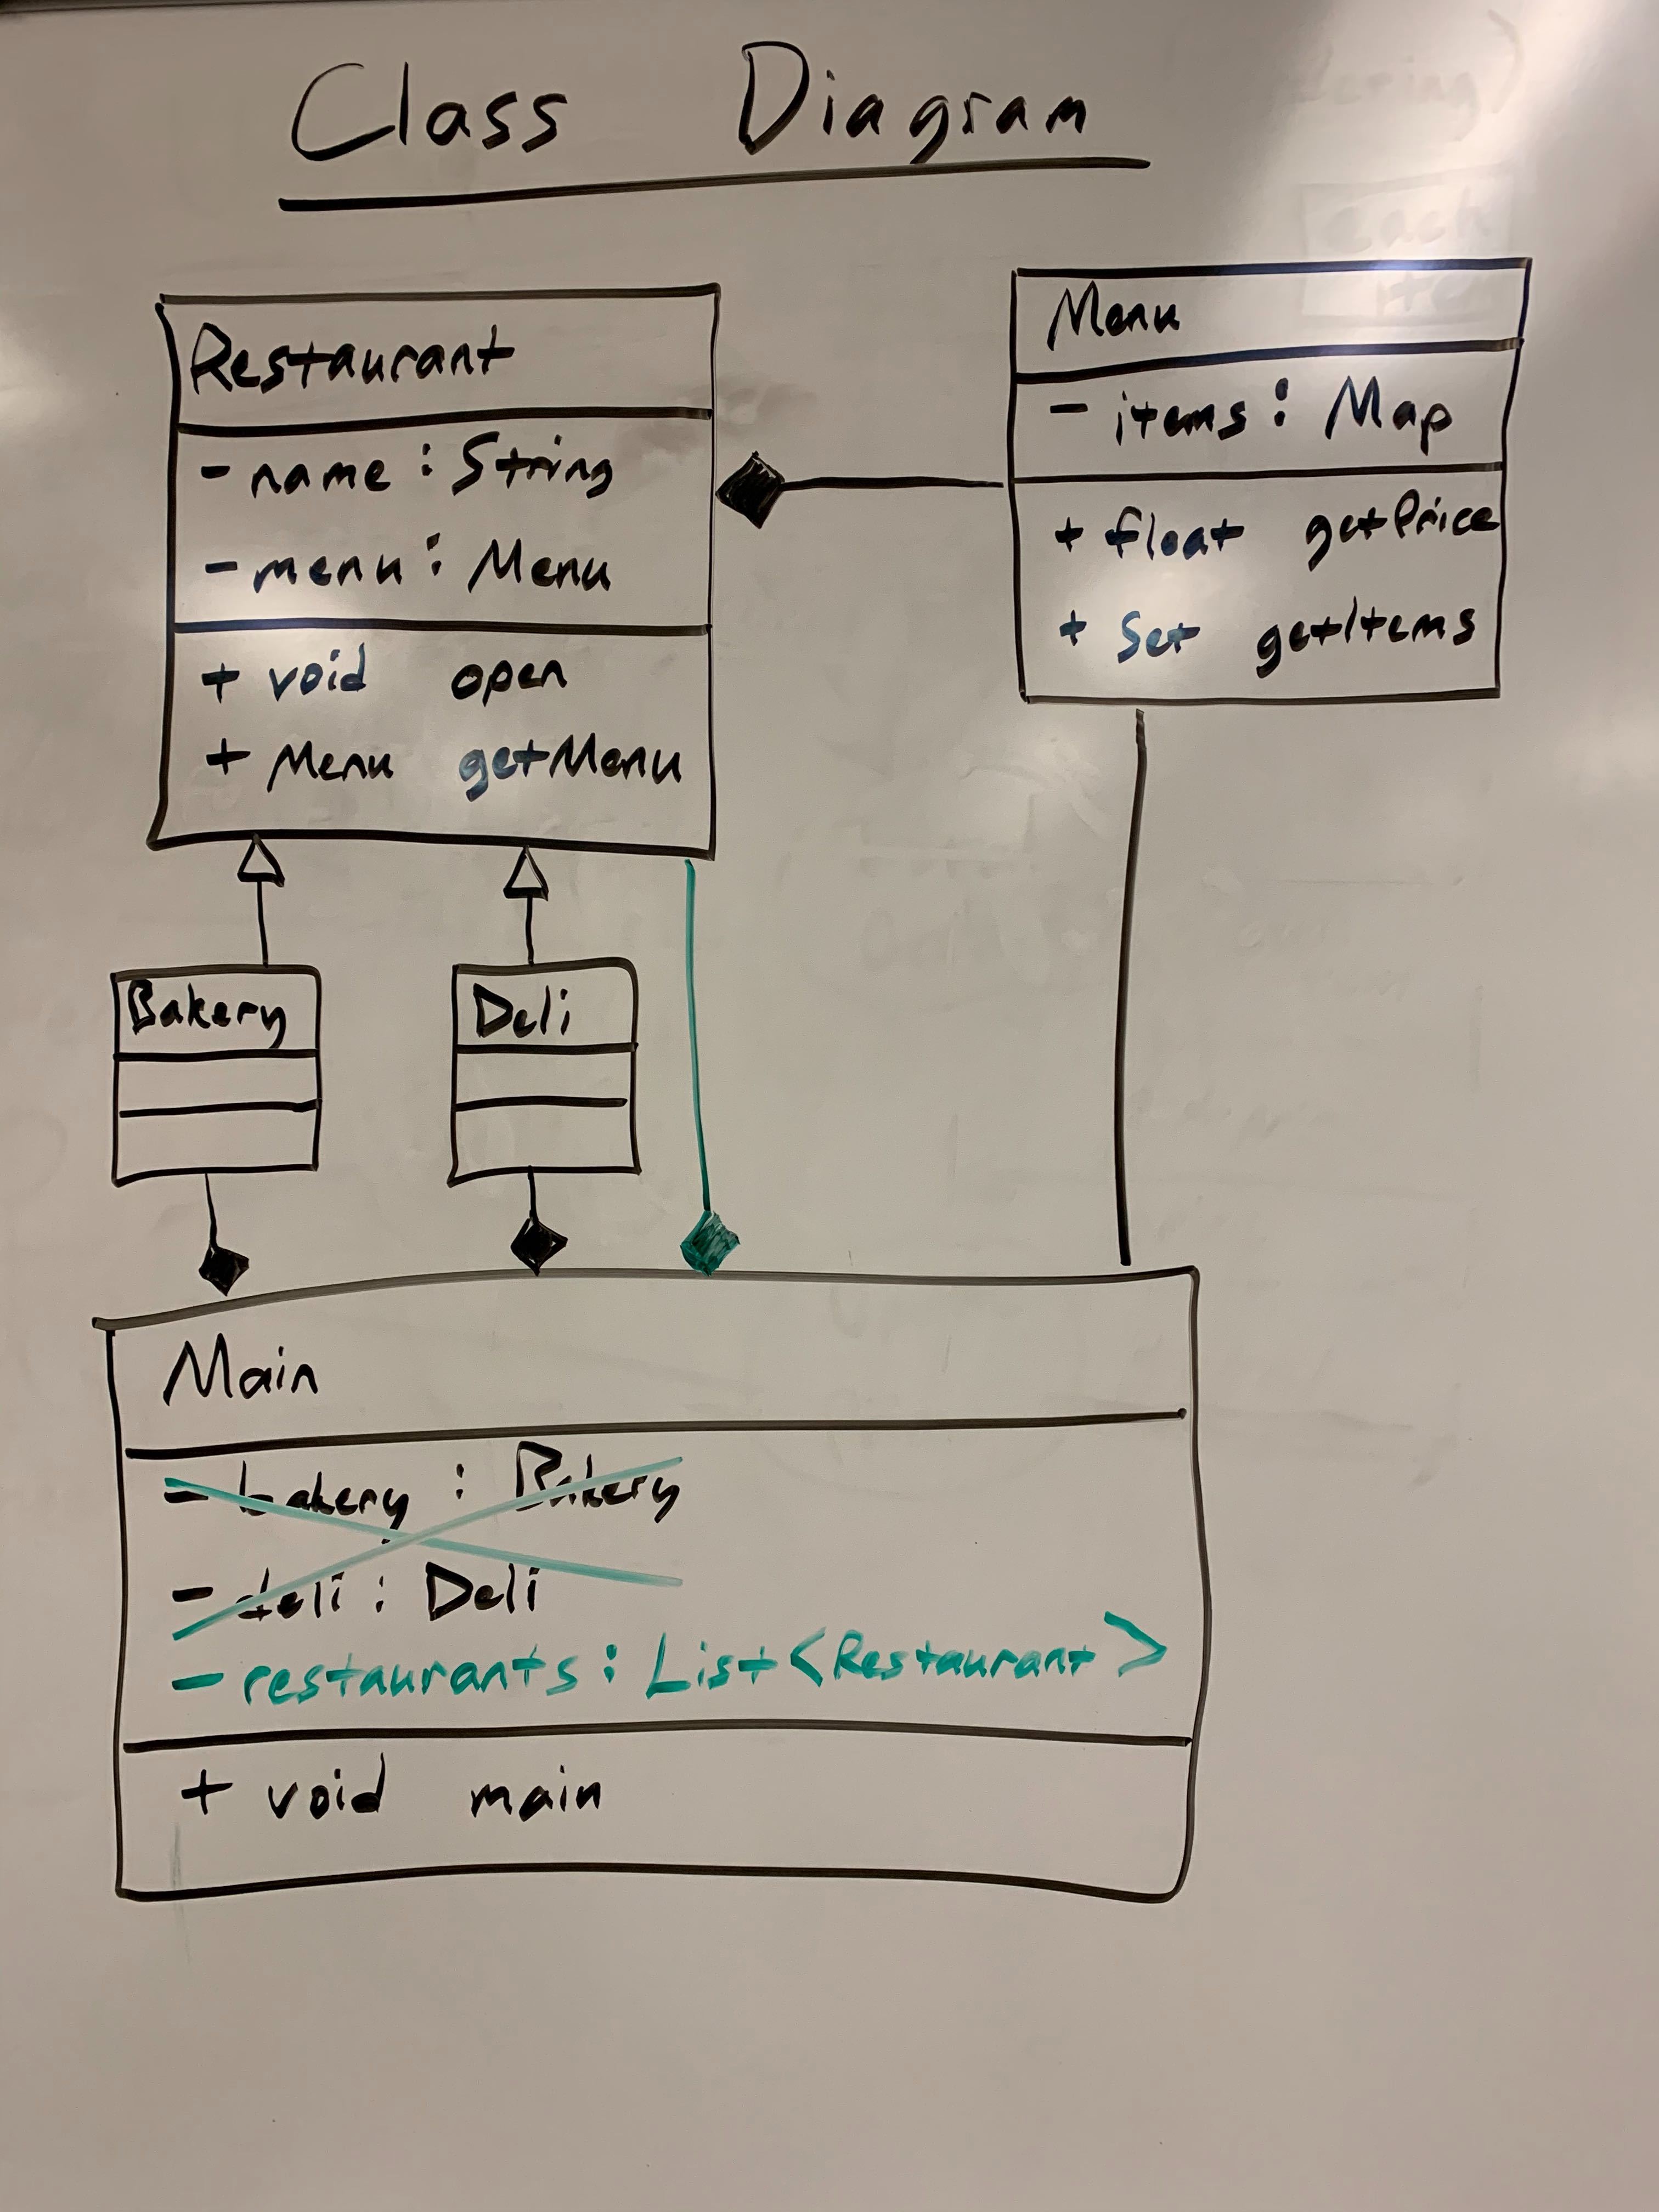 Class Diagram
Restaurant
- name : String
- menu : Menu
+ void open
+ Menu getMenu
Menu
- items : Map
+ float getPrice
+ Set getItems
Bakery
Deli
Main
- bakery : Bakery
- deli : Deli
- restaurants : List<Restaurant>
+ void main
each